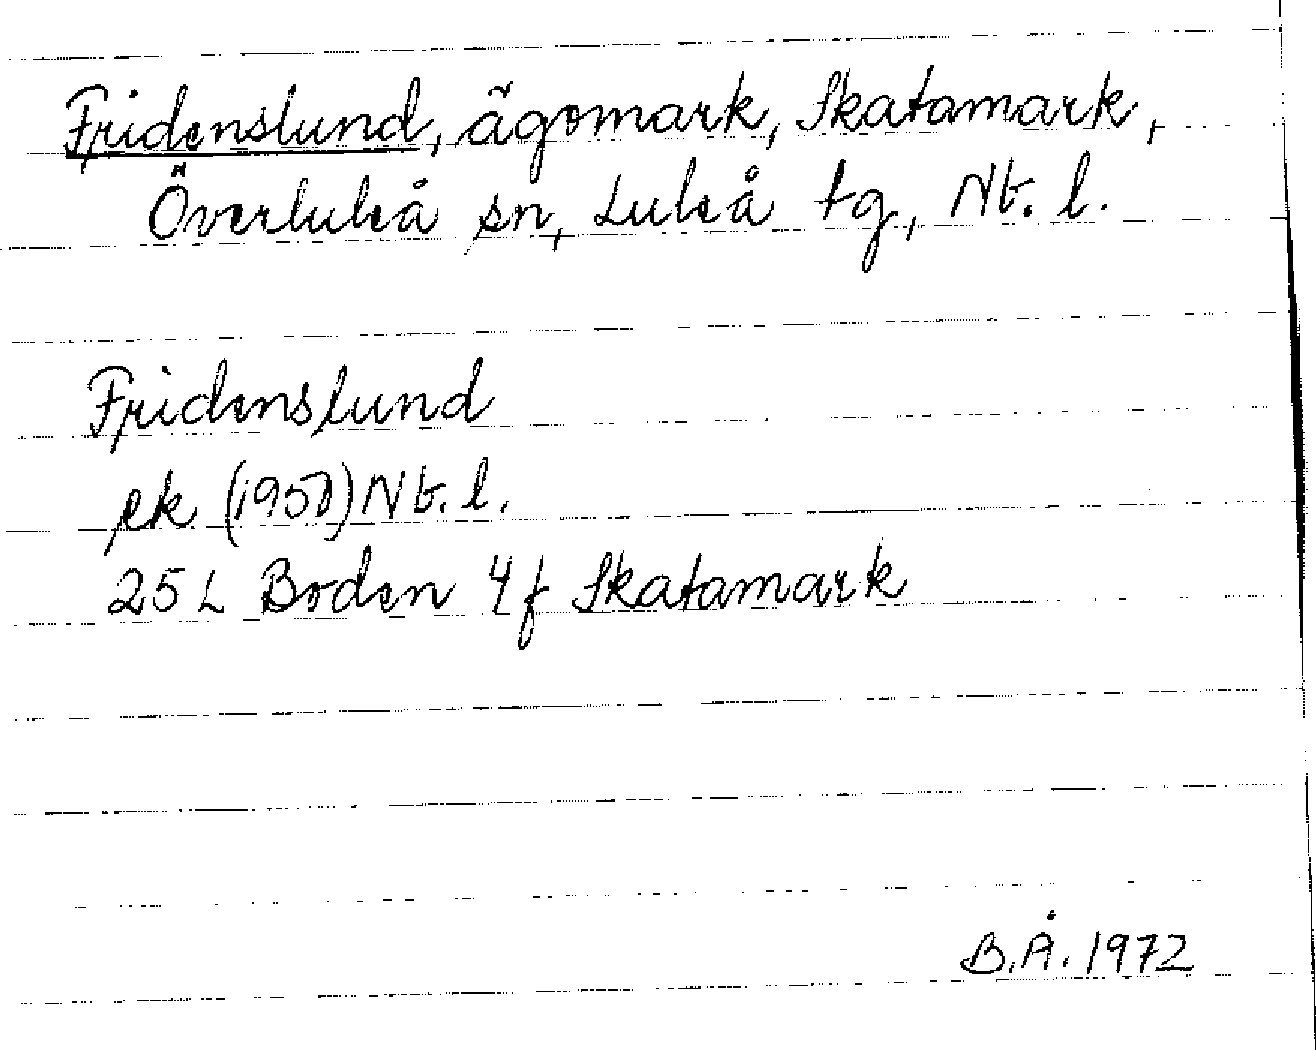 Fridenslund, ägomark, Skatamark,
Överluleå sn, Luleå tg, Nb. l.
Fridenslund
ek (1950) Nb. l.
25 L Boden 4f Skatamark
B.Å. 1972